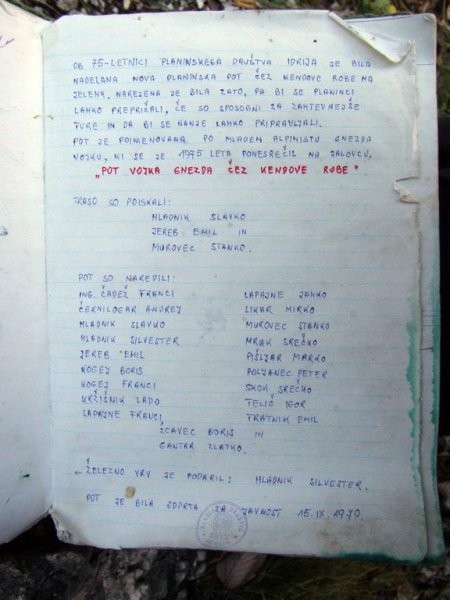 OB 75-LETNICI PLANINSKEGA DRUŠTVA IDRIJA JE BILA
NADELANA NOVA PLANINSKA POT ČEZ KENDOVE ROBE NA
JELENK. NAREJENA JE BILA ZATO, DA BI SE PLANINCI
LAHKO PREPRIČALI, ČE SO SPOSOBNI ZA ZAHTEVNEJŠE
TURE IN DA BI SE NANJE LAHKO PRIPRAVLJALI.
POT JE POIMENOVANA PO MLADEM ALPINISTU GNEZDA
VOJKU, KI SE JE 1975 LETA PONESREČIL NA JALOVCU.
"POT VOJKA GNEZDA ČEZ KENDOVE ROBE"
TRASO SO POISKALI:
MLADNIK SLAVKO
JEREB EMIL IN
MUROVEC STANKO.
POT SO NAREDILI:
ING. ČADEŽ FRANCI LAPAJNE JANKO
ČERNILOGAR ANDREJ LIKAR MIRKO
MLADNIK SLAVKO MUROVEC STANKO
MLADNIK SILVESTER MRAK SREČKO
JEREB EMIL PIŠLJAR MARKO
KOGEJ BORIS POLJANEC PETER
KOGEJ FRANCI SKOK SREČKO
KRŽIŠNIK LADO TELIČ IGOR
LAPAJNE FRANCI TRATNIK EMIL
ŠČAVEC BORIS IN
GANTAR ZLATKO.
ŽELEZNO VRV JE PODARIL: MLADNIK SILVESTER.
POT JE BILA ODPRTA ZA JAVNOST 15.IX.1979.